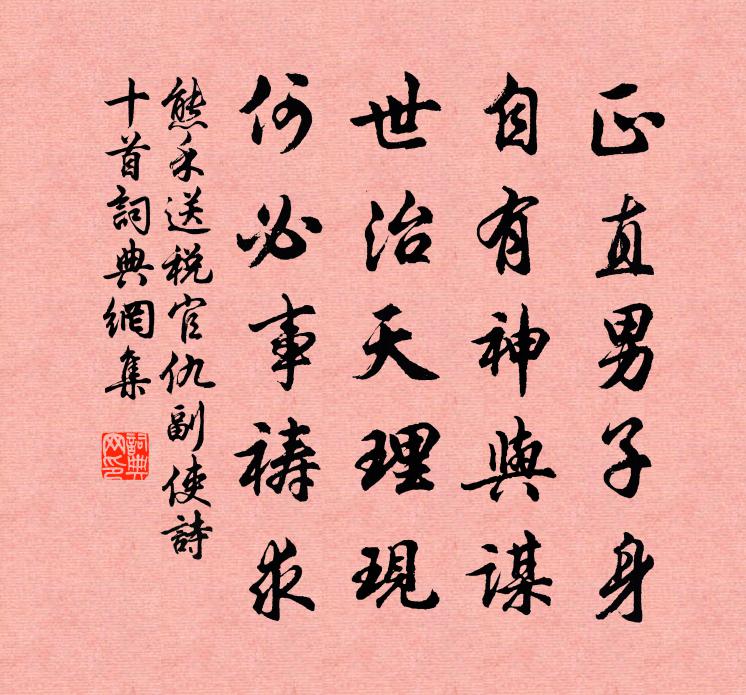 正直男子身
自有神與謀
世治天理現
何必事禱求
熊禾送税官仇副使詩
十首詞典網集
詞典
网印